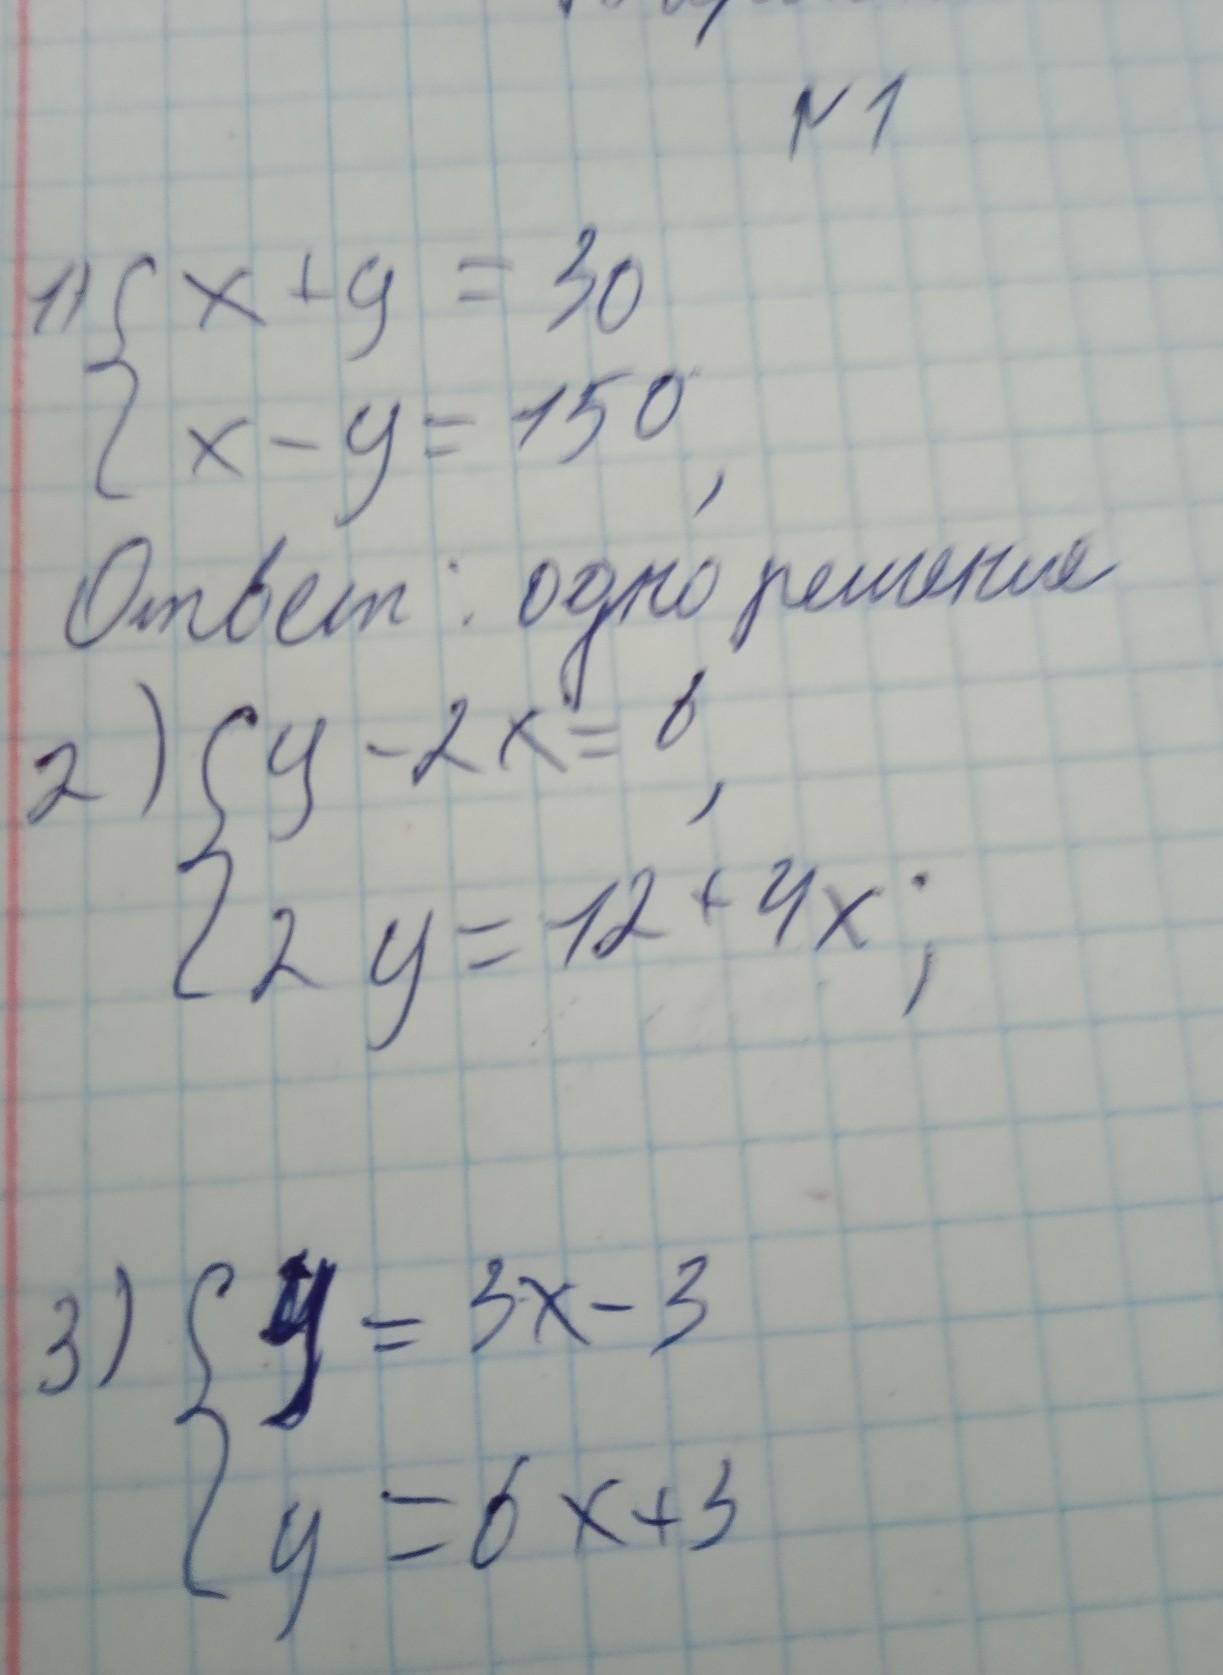 N 1
1) { x + y = 30
x - y = 150,
Ответ: одно решения
2) { y - 2x = 6,
2y = 12 + 4x;
3) { y = 3x - 3
y = 6x + 3